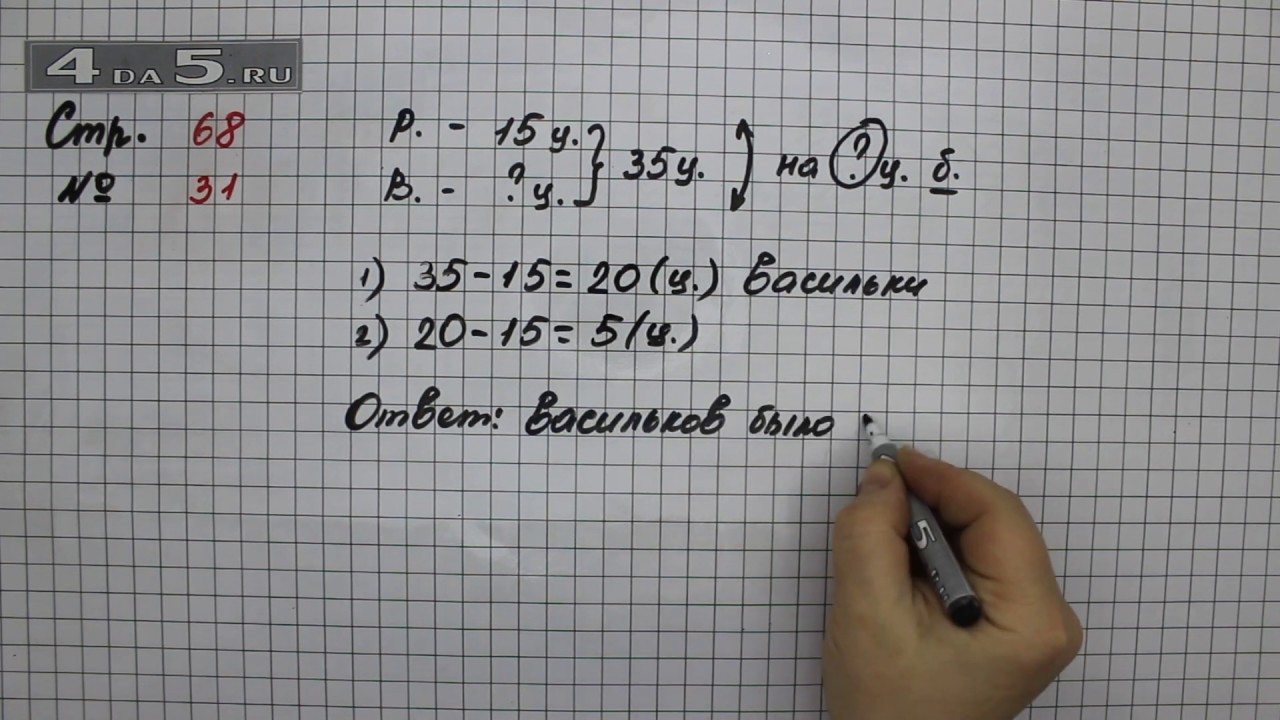 4DA5.RU
Стр. 68
№ 31
Р. - 15 ц. } 35 ц. на ? ц. б.
В. - ? ц.
1) 35 - 15 = 20 (ц.) васильки
2) 20 - 15 = 5 (ц.)
Ответ: васильков было
5